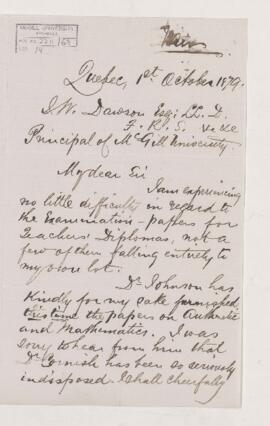 McGILL UNIVERSITY
ARCHIVES
ACC. NO. 2211/63
14
Quebec, 1st October 1879.
J. W. Dawson Esqr LL. D.
F. R. S. &c &c
Principal of McGill University
My dear Sir
I am experiencing
no little difficulty in regard to
the Examination-papers for
Teachers' Diplomas, not a
few of them falling entirely to
my own lot.
Dr Johnson has
kindly for my sake furnished
this time the papers on Arithmetic
and Mathematics. I was
sorry to hear from him that
Dr Cornish has been so seriously
indisposed. I shall cheerfully